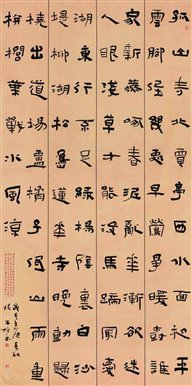 孤山寺北賈亭西水面初平
雲腳低幾處早鶯爭暖樹誰
家新燕啄春泥亂花漸欲迷
人眼淺草才能沒馬蹄最愛
湖東行不足綠楊陰裏白沙
堤柳湖松島蓮花寺晚動歸
橈出道場盧橘子低山雨重
栟櫚葉戰水風涼